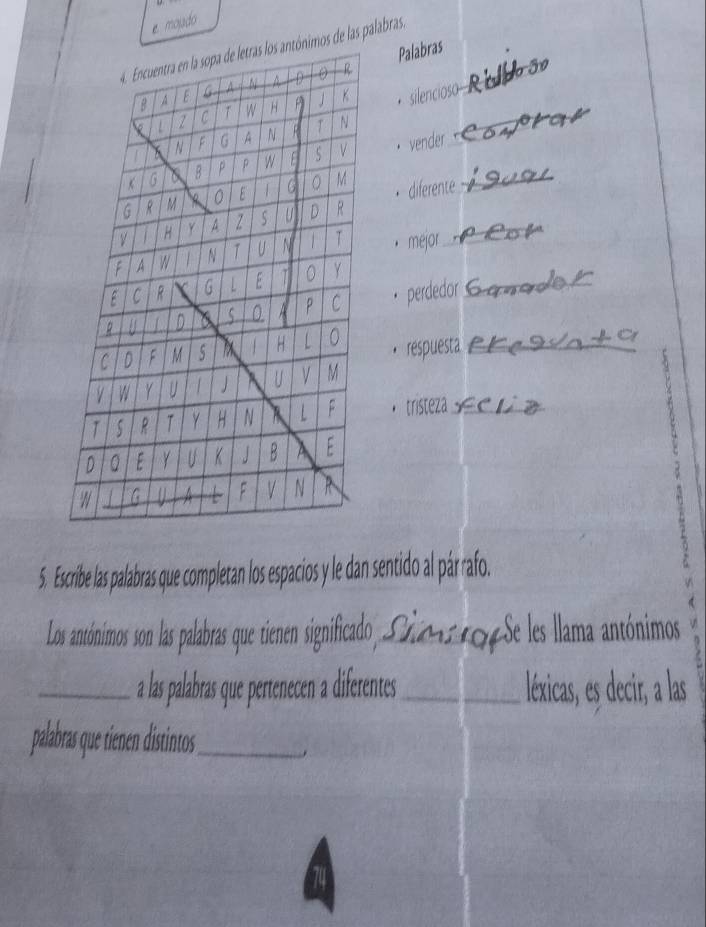 e. mojado
4. Encuentra en la sopa de letras los antónimos de las palabras.
Palabras
B A E G A N A D O R
L Z C T W H P J K
I N F G A N T N
K G B P P W E S V
G R M O E I G O M
V I H Y A Z S U D R
F A W I N T U N I T
E C R G L E T O Y
R U I D O S O A P C
C D F M S M I H L O
V W Y U I J U V M
T S R T Y H N A L F
D Q E Y U K J B A E
W I G U A L F V N R
• silencioso Ruidoso
• vender comprar
• diferente igual
• mejor peor
• perdedor Ganador
• respuesta pregunta
• tristeza feliz
5. Escribe las palabras que completan los espacios y le dan sentido al párrafo.
Los antónimos son las palabras que tienen significado Se les llama antónimos
a las palabras que pertenecen a diferentes léxicas, es decir, a las
palabras que tienen distintos .
S. A. S. Prohibida su reproducción
74